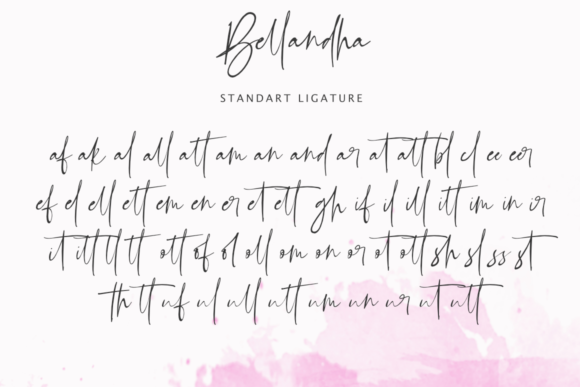 Bellandha
STANDART LIGATURE
af ak al all att am an and ar at att bl cl ee eer
ef el ell ett em en er et ett gh if il ill itt im in ir
it itt tl tt ott of ol oll om on or ot ott sh sl ss st
th tt uf ul ull utt um un ur ut utt